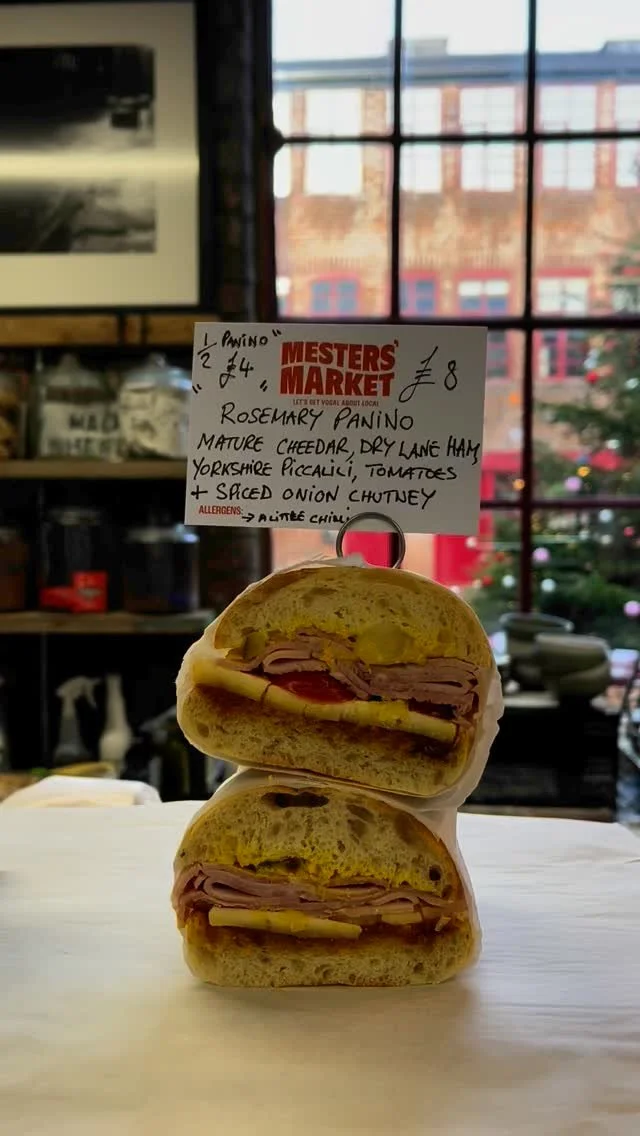 1/2 PANINO
"£4"
MESTERS'
MARKET
LET'S GET VOCAL ABOUT LOCAL
£8
ROSEMARY PANINO
MATURE CHEEDAR, DRY LANE HAM,
YORKSHIRE PICCALILI, TOMATOES
+ SPICED ONION CHUTNEY
ALLERGENS: → A LITTLE CHILLI